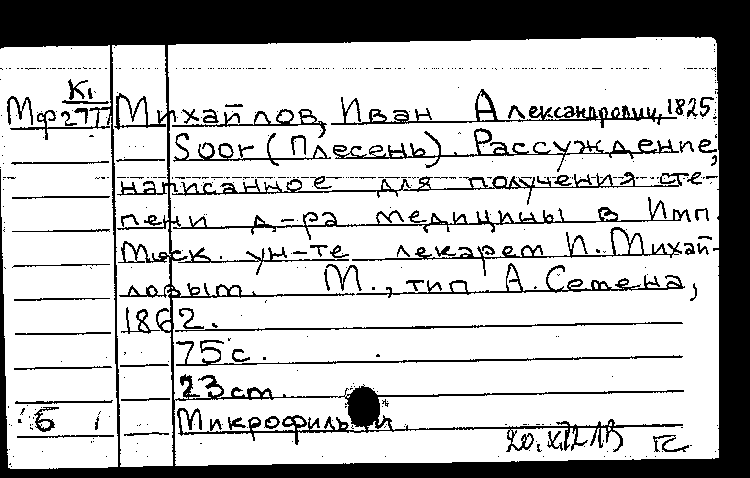 К1
Мф2777 Михайлов, Иван Александрович, 1825.
Soor (Плесень). Рассуждение,
написанное для получения сте-
пени д-ра медицины в Имп.
Моск. ун-те лекарем И. Михай-
ловым. М., тип. А. Семена,
1862.
75 с.
23 cm.
Б Микрофильм.